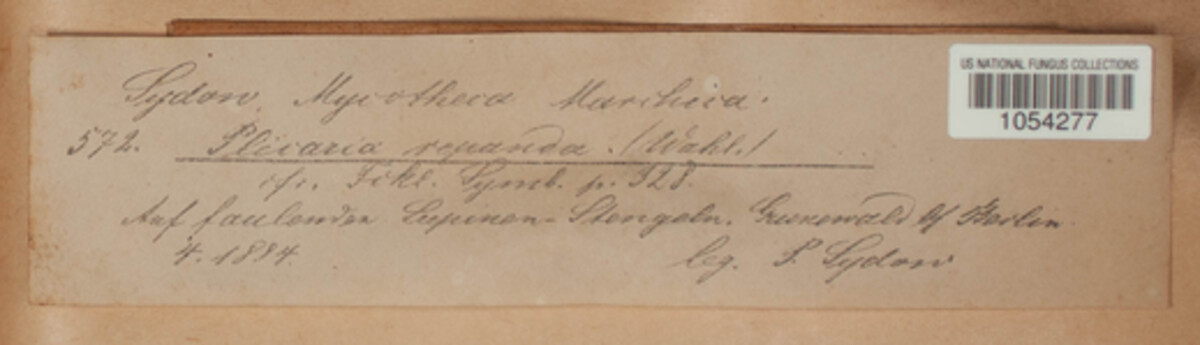 Sydow, Mycotheca Marchica.
572. Plicaria repanda. (Wahl.)
cfr. Fckl. Symb. p. 328.
Auf faulenden Lupinen-Stengeln. Grunewald b/ Berlin.
4. 1884.
leg. P. Sydow
US NATIONAL FUNGUS COLLECTIONS
1054277